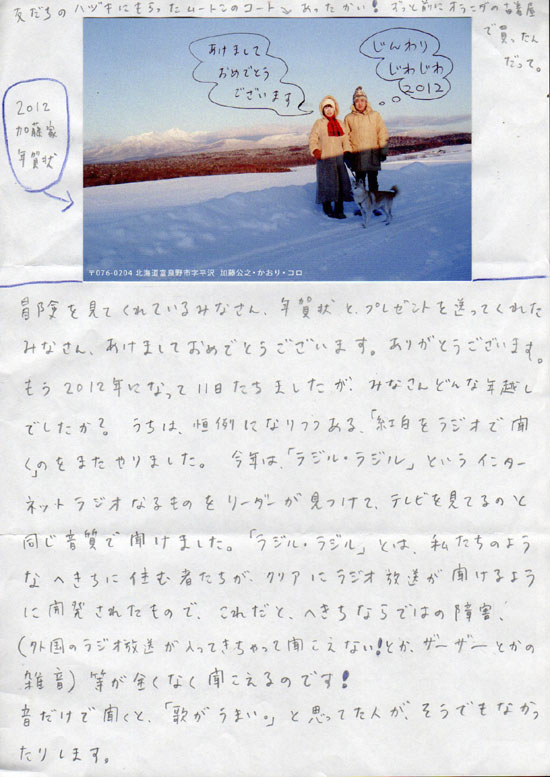 友だちのハヅキにもらったムートンのコート あったかい！ ずっと前にオランダの古着屋
で買ったん
だって。
あけまして
おめでとう
ございます
じんわり
じわじわ
2012
2012
加藤家
年賀状
〒076-0204 北海道富良野市字平沢 加藤公之・かおり・コロ
冒険を見てくれているみなさん、年賀状と、プレゼントを送ってくれた
みなさん、あけましておめでとうございます。ありがとうございます。
もう2012年になって11日たちましたが、みなさんどんな年越し
でしたか？ うちは、恒例になりつつある、「紅白をラジオで聞
く」のをまたやりました。 今年は、「ラジル・ラジル」というインター
ネットラジオなるものをリーダーが見つけて、テレビを見てるのと
同じ音質で聞けました。「ラジル・ラジル」とは、私たちのよう
なへきちに住む者たちが、クリアにラジオ放送が聞けるよう
に開発されたもので、これだと、へきちならではの障害、
（外国のラジオ放送が入ってきちゃって聞こえない！とか、ザーザーとかの
雑音）等が全くなく聞こえるのです！
音だけで聞くと、「歌がうまい。」と思ってた人が、そうでもなかっ
たりします。